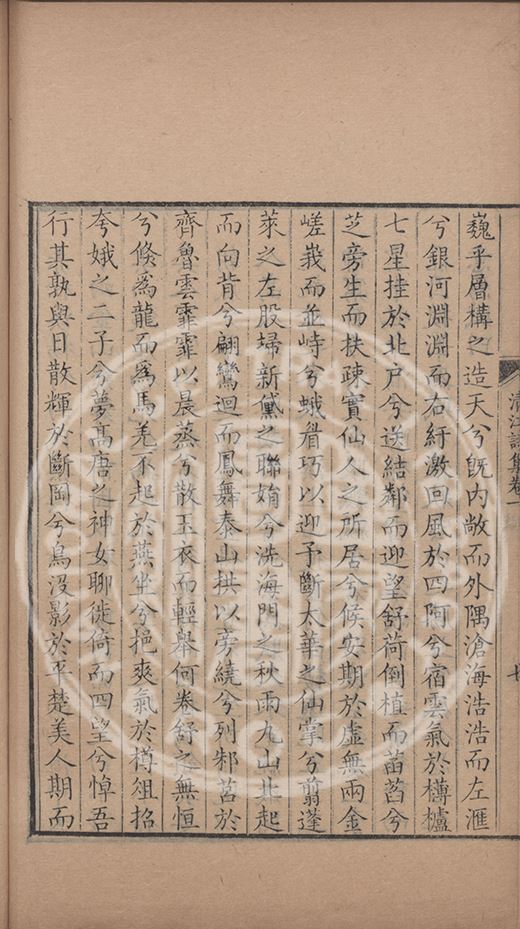 清江詩集卷一
七
巍乎層構之造天兮旣内敞而外隅滄海浩浩而左滙
兮銀河淵淵而右紆激回風於四阿兮宿雲氣於欂櫨
七星挂於北户兮送結鄰而迎望舒荷倒植而菡萏兮
芝旁生而扶疎實仙人之所居兮候安期於虛無兩金
嵯峩而並峙兮蛾眉巧以迎予斷太華之仙掌兮翦蓬
萊之左股埽新黛之聯娟兮洗海門之秋雨九山北起
而向背兮翩鸞迴而鳳舞泰山拱以旁繞兮列邾莒於
齊魯雲霏霏以晨蒸兮散玉衣而輕舉何卷舒之無恒
兮倐爲龍而爲馬羌不起於燕坐兮挹爽氣於樽俎招
夸娥之二子兮夢髙唐之神女聊徙倚而四望兮悼吾
行其孰與日散輝於斷岡兮鳥没影於平楚美人期而